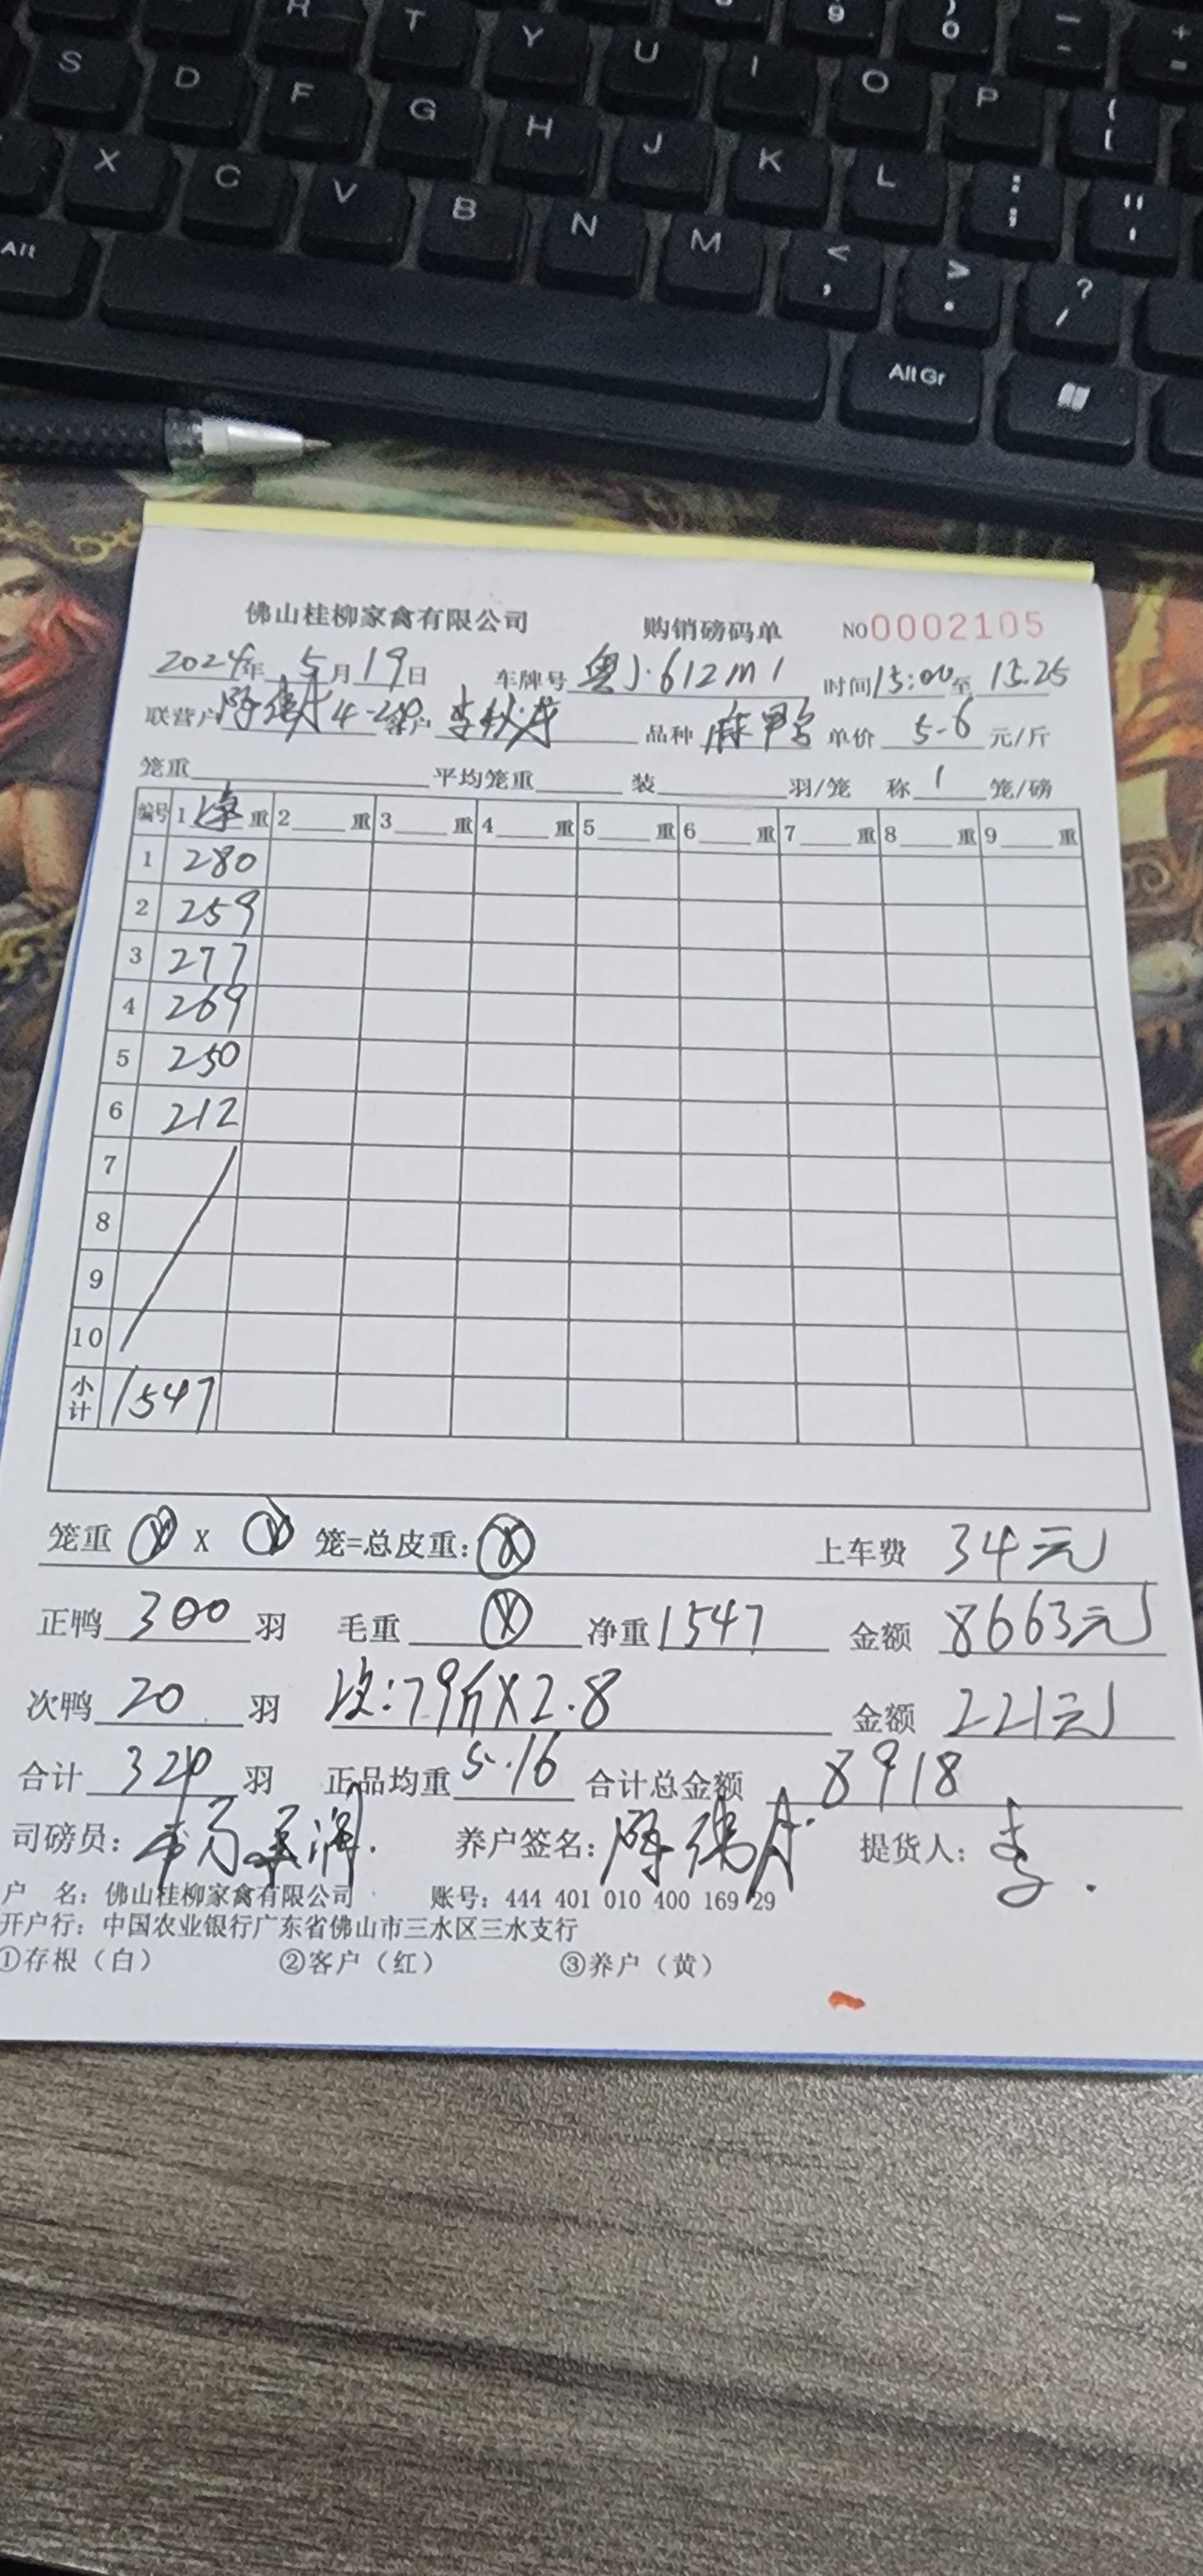 R T Y U I 9 ) 0 — - + =
S D F G H J K L O P { [
X C V B N M < , > . ? / : ; " '
Alt Alt Gr
佛山桂柳家禽有限公司 购销磅码单 NO 0002105
2024年 5月19日 车牌号 粤J·612M1 时间15:00至 15.25
联营户 4-2 客户 李 品种 麻鸭 单价 5-6 元/斤
笼重 平均笼重 装 羽/笼 称 1 笼/磅
编号 1 净 重 2 重 3 重 4 重 5 重 6 重 7 重 8 重 9 重
1 280
2 259
3 277
4 269
5 250
6 212
7
8
9
10
小计 1547
笼重 X 笼=总皮重: 上车费 34元
正鸭 300 羽 毛重 净重 1547 金额 8663元
次鸭 20 羽 次:79斤X2.8 金额 221元
合计 320 羽 正品均重 5.16 合计总金额 8918
司磅员: 养户签名: 陈 提货人: 李
户 名: 佛山桂柳家禽有限公司 账号: 444 401 010 400 169 29
开户行: 中国农业银行广东省佛山市三水区三水支行
①存根（白） ②客户（红） ③养户（黄）